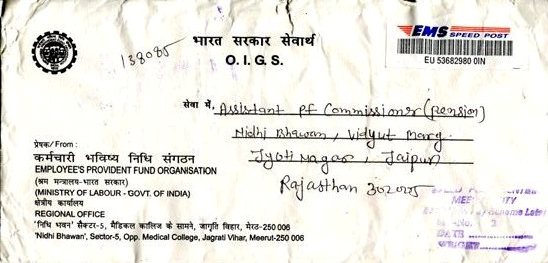 138085
भारत सरकार सेवार्थ
O. I. G. S.
EMS SPEED POST
EU 53682980 0IN
सेवा में, Assistant Pf Commissioner (pension)
Nidhi Bhawan, Vidyut Marg.
Jyoti Nagar, Jaipur
Rajasthan 302005
प्रेषक/From :
कर्मचारी भविष्य निधि संगठन
EMPLOYEE'S PROVIDENT FUND ORGANISATION
(श्रम मन्त्रालय-भारत सरकार)
(MINISTRY OF LABOUR - GOVT. OF INDIA)
क्षेत्रीय कार्यालय
REGIONAL OFFICE
'निधि भवन' सैक्टर-5, मैडिकल कालिज के सामने, जागृति विहार, मेरठ-250 006
'Nidhi Bhawan', Sector-5, Opp. Medical College, Jagrati Vihar, Meerut-250 006
DATE
WEIGHT